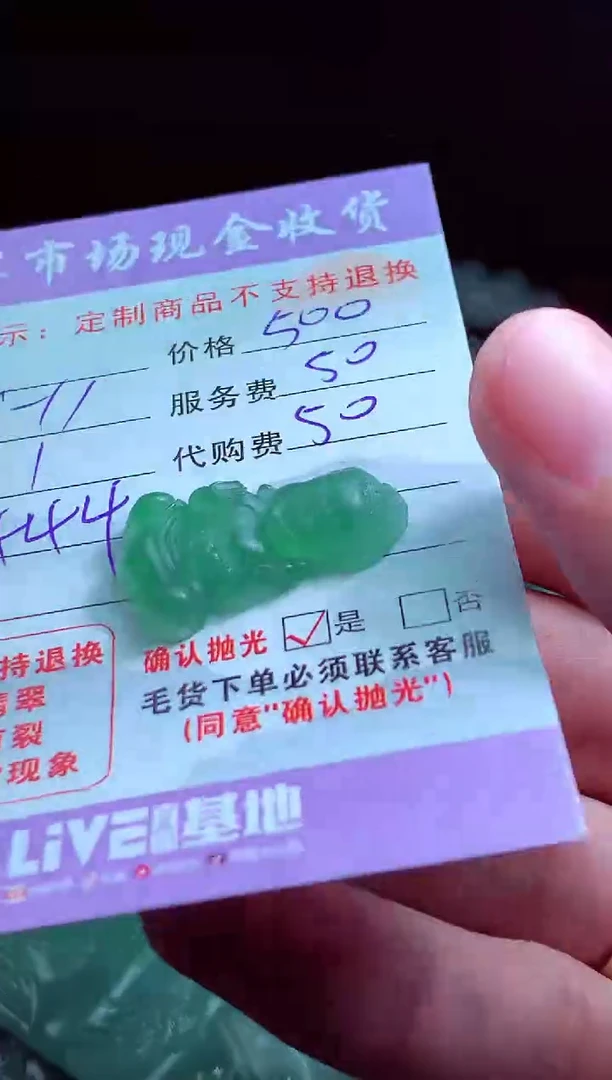 市场现金收货
示：定制商品不支持退换
价格 500
71 服务费 50
1 代购费 50
444
确认抛光 ☑是 □否
毛货下单必须联系客服
(同意"确认抛光")
持退换
翡翠
裂
现象
LiVE 基地